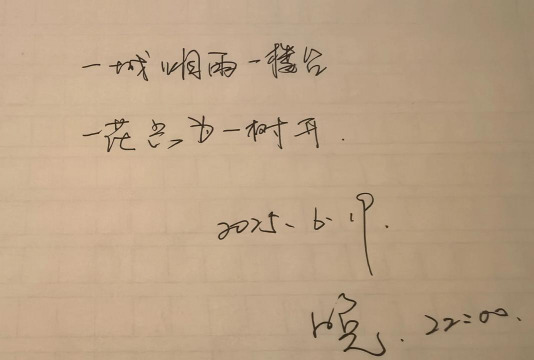 一城烟雨一楼台
一花只为一树开.
2025.6.19.
晚. 22:00.